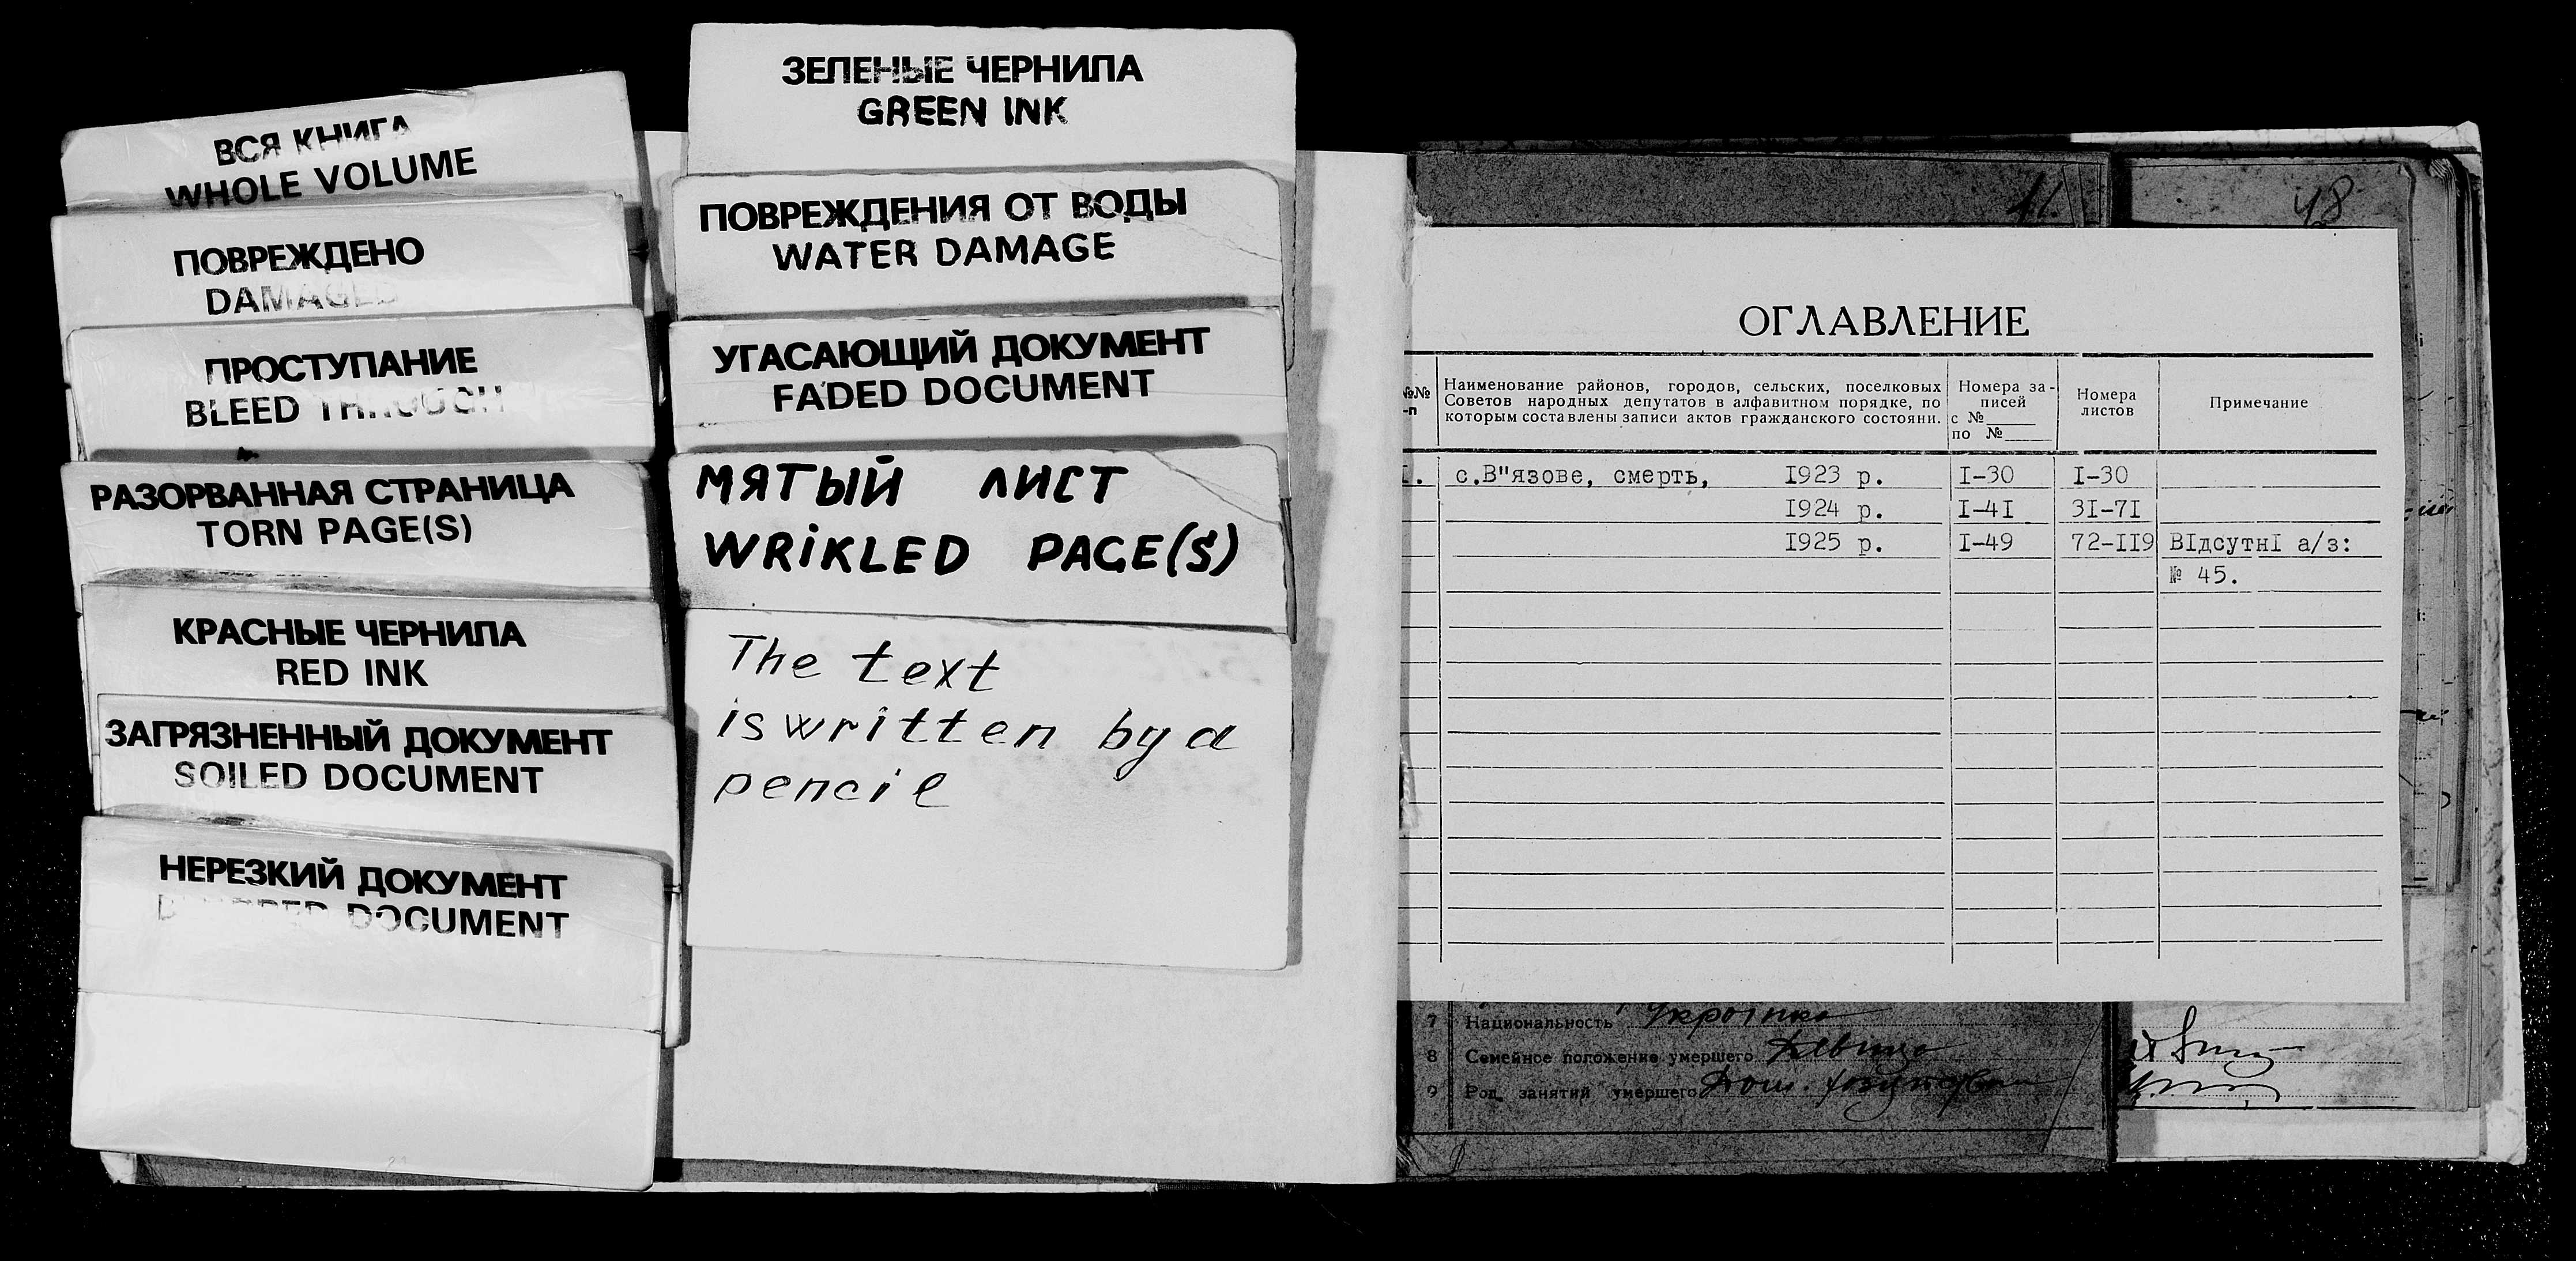 ВСЯ КНИГА
WHOLE VOLUME
ПОВРЕЖДЕНО
DAMAGED
ПРОСТУПАНИЕ
BLEED THROUGH
РАЗОРВАННАЯ СТРАНИЦА
TORN PAGE(S)
КРАСНЫЕ ЧЕРНИЛА
RED INK
ЗАГРЯЗНЕННЫЙ ДОКУМЕНТ
SOILED DOCUMENT
НЕРЕЗКИЙ ДОКУМЕНТ
DOCUMENT
ЗЕЛЕНЫЕ ЧЕРНИЛА
GREEN INK
ПОВРЕЖДЕНИЯ ОТ ВОДЫ
WATER DAMAGE
УГАСАЮЩИЙ ДОКУМЕНТ
FADED DOCUMENT
МЯТЫЙ ЛИСТ
WRIKLED PAGE(S)
The text
is written by a
pencil
48
ОГЛАВЛЕНИЕ
№№ Наименование районов, городов, сельских, поселковых
-п Советов народных депутатов в алфавитном порядке, по
которым составлены записи актов гражданского состояни.
Номера за-
писей
с №
по №
Номера
листов
Примечание
1. с.В"язове, смерть, I923 р. I-30 I-30
I924 р. I-4I 3I-7I
I925 р. I-49 72-II9 ВIдсутнI а/з:
№ 45.
7 Национальность
8 Семейное положение умершего Девица
9 Род занятий умершего